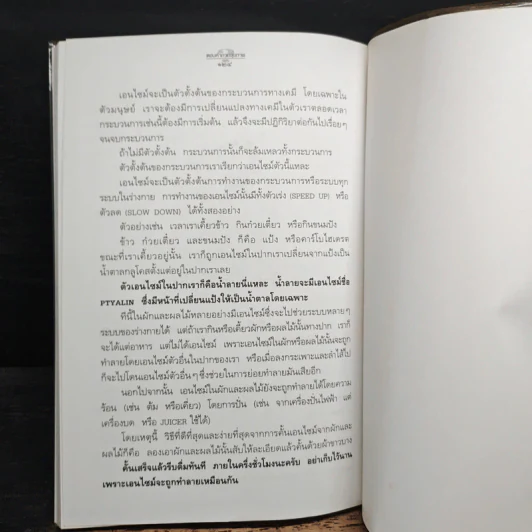 ตอบคำถามสุขภาพ
๒๒๕
เอนไซม์จะเป็นตัวตั้งต้นของกระบวนการทางเคมี โดยเฉพาะใน
ตัวมนุษย์ เราจะต้องมีการเปลี่ยนแปลงทางเคมีในตัวเราตลอดเวลา
กระบวนการเช่นนี้ต้องมีการเริ่มต้น แล้วจึงจะมีปฏิกิริยาต่อกันไปเรื่อยๆ
จนจบกระบวนการ
ถ้าไม่มีตัวตั้งต้น กระบวนการนั้นก็จะล้มเหลวทั้งกระบวนการ
ตัวตั้งต้นของกระบวนการเราเรียกว่าเอนไซม์ตัวนี้แหละ
เอนไซม์จะเป็นตัวตั้งต้นการทำงานของกระบวนการหรือระบบทุก
ระบบในร่างกาย การทำงานของเอนไซม์นั้นมีทั้งตัวเร่ง (SPEED UP) หรือ
ตัวลด (SLOW DOWN) ได้ทั้งสองอย่าง
ตัวอย่างเช่น เวลาเราเคี้ยวข้าว กินก๋วยเตี๋ยว หรือกินขนมปัง
ข้าว ก๋วยเตี๋ยว และขนมปัง ก็คือ แป้ง หรือคาร์โบไฮเดรต
ขณะที่เราเคี้ยวอยู่นั้น เราก็ถูกเอนไซม์ในปากเราเปลี่ยนจากแป้งเป็น
น้ำตาลกลูโคสตั้งแต่อยู่ในปากเราเลย
ตัวเอนไซม์ในปากเราก็คือน้ำลายนี่แหละ น้ำลายจะมีเอนไซม์ชื่อ
PTYALIN ซึ่งมีหน้าที่เปลี่ยนแป้งให้เป็นน้ำตาลโดยเฉพาะ
ทีนี้ในผักและผลไม้หลายอย่างมีเอนไซม์ซึ่งจะไปช่วยระบบหลายๆ
ระบบของร่างกายได้ แต่ถ้าเรากินหรือเคี้ยวผักหรือผลไม้นั้นทางปาก เราก็
จะได้แต่อาหาร แต่ไม่ได้เอนไซม์ เพราะเอนไซม์ในผักหรือผลไม้นั้นจะถูก
ทำลายโดยเอนไซม์ตัวอื่นในปากของเรา หรือเมื่อลงกระเพาะและลำไส้ไป
ก็จะไปโดนเอนไซม์ตัวอื่นๆ ซึ่งช่วยในการย่อยทำลายมันเสียอีก
นอกไปจากนั้น เอนไซม์ในผักและผลไม้ยังจะถูกทำลายได้โดยความ
ร้อน (เช่น ต้ม หรือเคี่ยว) โดยการปั่น (เช่น จากเครื่องปั่นไฟฟ้า แต่
เครื่องบด หรือ JUICER ใช้ได้)
โดยเหตุนี้ วิธีที่ดีที่สุดและง่ายที่สุดจากการคั้นเอนไซม์จากผักและ
ผลไม้ก็คือ ลองเอาผักและผลไม้นั้นสับให้ละเอียดแล้วคั้นด้วยผ้าขาวบาง
คั้นเสร็จแล้วรีบดื่มทันที ภายในครึ่งชั่วโมงนะครับ อย่าเก็บไว้นาน
เพราะเอนไซม์จะถูกทำลายเหมือนกัน